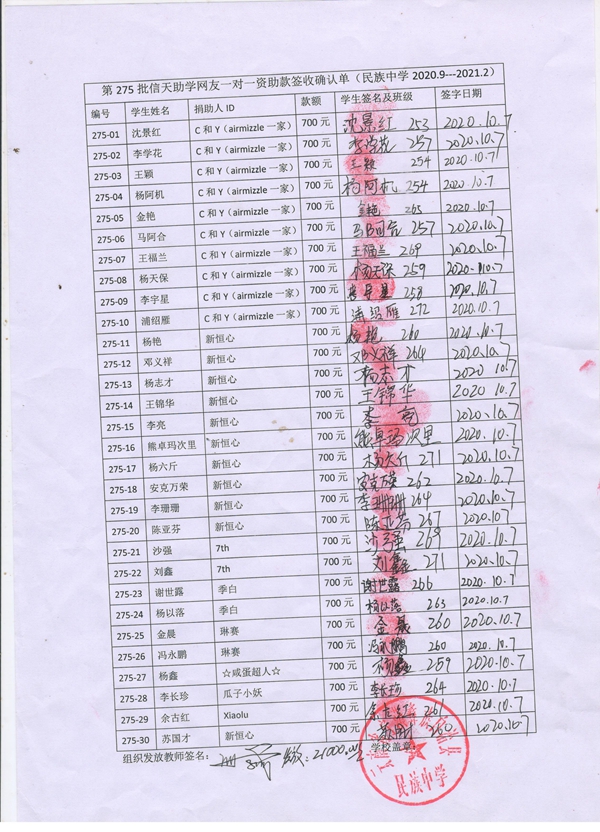 第 275 批信天助学网友一对一资助款签收确认单（民族中学 2020.9---2021.2）
编号 学生姓名 捐助人 ID 款额 学生签名及班级 签字日期
275-01 沈景红 C 和 Y（airmizzle 一家） 700 元 沈景红 253 2020.10.7
275-02 李学花 C 和 Y（airmizzle 一家） 700 元 李学花 257 2020.10.7
275-03 王颖 C 和 Y（airmizzle 一家） 700 元 王颖 254 2020.10.7
275-04 杨阿机 C 和 Y（airmizzle 一家） 700 元 杨阿机 254 2020.10.7
275-05 金艳 C 和 Y（airmizzle 一家） 700 元 金艳 265 2020.10.7
275-06 马阿合 C 和 Y（airmizzle 一家） 700 元 马阿合 257 2020.10.7
275-07 王福兰 C 和 Y（airmizzle 一家） 700 元 王福兰 269 2020.10.7
275-08 杨天保 C 和 Y（airmizzle 一家） 700 元 杨天保 259 2020.10.7
275-09 李宇星 C 和 Y（airmizzle 一家） 700 元 李宇星 258 2020.10.7
275-10 浦绍雁 C 和 Y（airmizzle 一家） 700 元 浦绍雁 272 2020.10.7
275-11 杨艳 新恒心 700 元 杨艳 260 2020.10.7
275-12 邓义祥 新恒心 700 元 邓义祥 264 2020.10.7
275-13 杨志才 新恒心 700 元 杨志才 2020 10.7
275-14 王锦华 新恒心 700 元 王锦华 2020 10.7
275-15 李亮 新恒心 700 元 李亮 2020.10.7
275-16 熊卓玛次里 新恒心 700 元 熊卓玛次里 2020.10.7
275-17 杨六斤 新恒心 700 元 杨六斤 271 2020.10.7
275-18 安克万荣 新恒心 700 元 安克万荣 262 2020.10.7
275-19 李珊珊 新恒心 700 元 李珊珊 264 2020.10.7
275-20 陈亚芬 新恒心 700 元 陈亚芬 267 2020.10.7
275-21 沙强 7th 700 元 沙强 269 2020.10.7
275-22 刘鑫 7th 700 元 刘鑫 271 2020.10.7
275-23 谢世露 季白 700 元 谢世露 266 2020.10.7
275-24 杨以落 季白 700 元 杨以落 263 2020.10.7
275-25 金晨 琳赛 700 元 金晨 260 2020.10.7
275-26 冯永鹏 琳赛 700 元 冯永鹏 260 2020.10.7
275-27 杨鑫 ☆咸蛋超人☆ 700 元 杨鑫 259 2020.10.7
275-28 李长珍 瓜子小妖 700 元 李长珍 264 2020.10.7
275-29 余古红 Xiaolu 700 元 余古红 261 2020.10.7
275-30 苏国才 新恒心 700 元 260 2020.10.7
组织发放教师签名： 21000.00 学校盖章：
民族中学